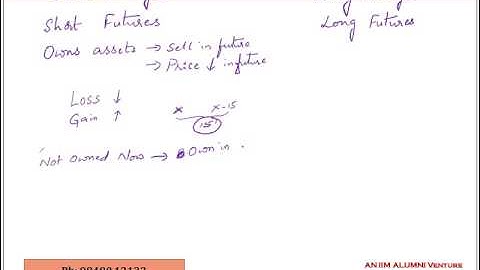 Short Futures
Long Futures
Owns assets → Sell in future
→ Price ↓ in future
Loss ↓
Gain ↑
x x-15
15
Not Owned Now → Own in
AN IIM ALUMNI VENTURE